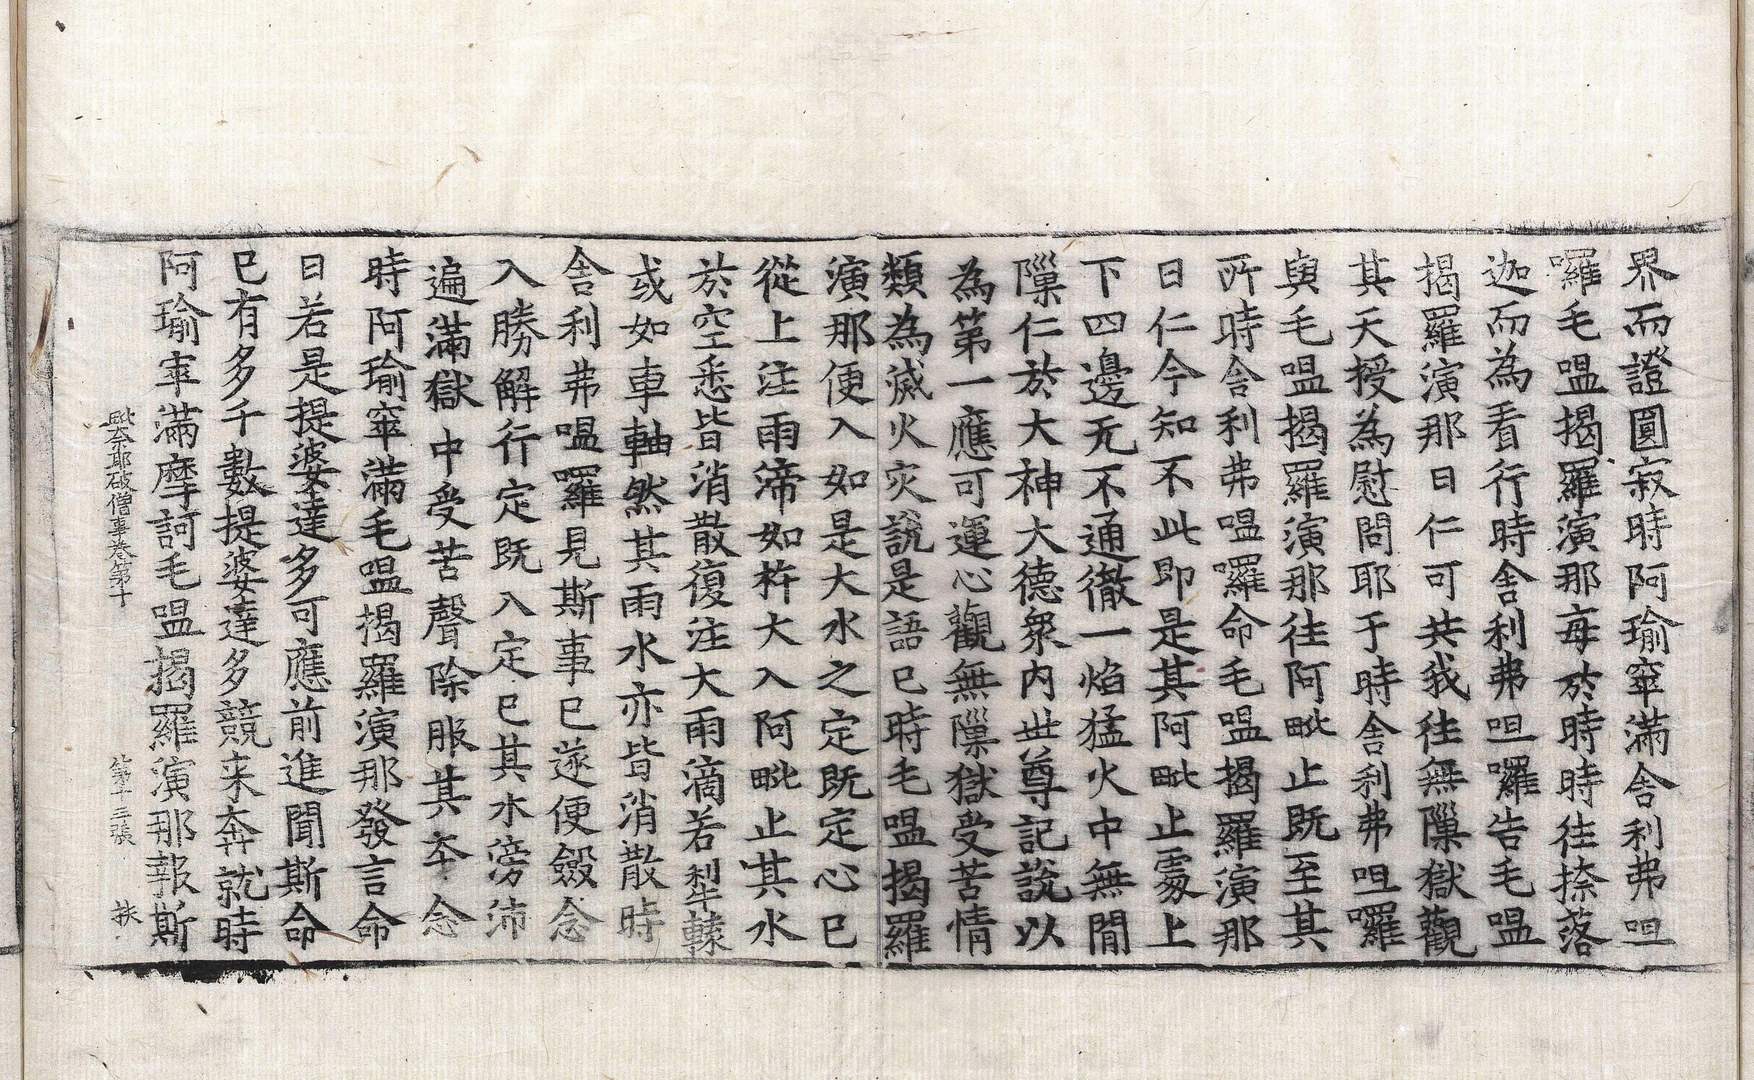 界而證圓寂時阿瑜窣滿舍利弗呾
囉毛嗢揭羅演那每於時時往捺落
迦而為看行時舍利弗呾囉告毛嗢
揭羅演那曰仁可共我往無隙獄觀
其天授為慰問耶于時舍利弗呾囉
與毛嗢揭羅演那往阿毗止既至其
所時舍利弗嗢囉命毛嗢揭羅演那
曰仁今知不此即是其阿毗止處上
下四邊无不通徹一焰猛火中無間
隙仁於大神大德衆内世尊記說以
為第一應可運心觀無隙獄受苦情
類為滅火灾說是語已時毛嗢揭羅
演那便入如是大水之定既定心已
從上注雨渧如杵大入阿毗止其水
於空悉皆消散復注大雨滴若犁轅
或如車軸然其雨水亦皆消散時
舍利弗嗢囉見斯事已遂便斂念
入勝解行定既入定已其水滂沛
遍滿獄中受苦聲除服其夲念
時阿瑜窣滿毛嗢揭羅演那發言命
曰若是提婆達多可應前進聞斯命
已有多千數提婆達多競来奔就時
阿瑜窣滿摩訶毛嗢揭羅演那報斯
毗奈耶破僧事卷第十 第十三張 扶